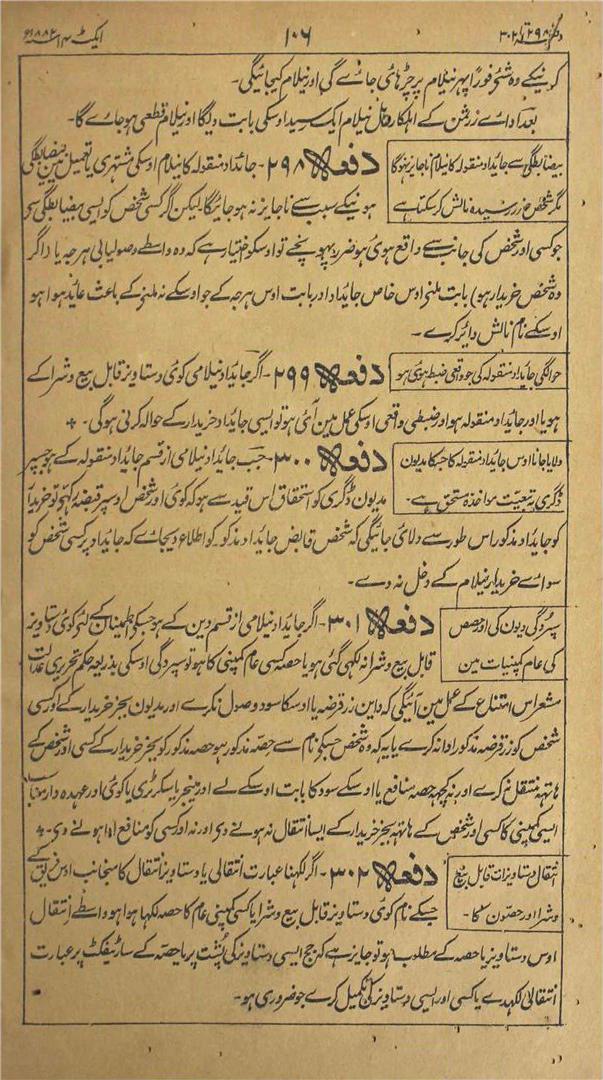 دفعہ ۲۹۸ تا ۳۰۲ ۱۰۶ ایکٹ ۱۴ سنہ ۱۸۸۲ء
کو نیکے وہ شئی فوراً پھر نیلام پر چڑہائی جائے گی اور نیلام کیجائیگی۔
بعد ادائے زرثمن کے اہلکار نیلام ایک رسید اوسکی بابت دیگا اور نیلام قطعی ہو جائے گا۔
بیضابطگی سے جائداد منقولہ کا نیلام ناجائز نہوگا دفعہ ۲۹۸۔ جائداد منقولہ کا نیلام اوسکی مشتہری یا تعمیل مین بیضابطگی
مگر شخص ضرر رسیدہ نالش کر سکتا ہے ہونیکے سبب سے ناجایز نہ ہو جائیگا لیکن اگر کسی شخص کو ایسی بیضابطگی سی
جو کسی اور شخص کی جانب سے واقع ہوئی ہو ضرر پہونچے تو اوسکو اختیار ہے کہ وہ واسطے وصولیابی ہرجہ یا (اگر
وہ شخص خریدار ہو) بابت ملنی اوس خاص جائداد اور بابت اوس ہرجہ کے جو اوسکے نہ ملنی کے باعث عاید ہوا ہو
اوسکے نام نالش دائر کرے۔
حوالگی جائداد منقولہ کی جو واقعی ضبط ہوئی ہو دفعہ ۲۹۹۔ اگر جائداد نیلامی کوئی دستاویز قابل بیع و شرا کے
ہو یا اور جائداد منقولہ ہو اور ضبطی واقعی اوسکی عمل مین آئی ہو تو ایسی جائداد خریدار کے حوالہ کرنی ہوگی۔
دلایا جانا اوس جائداد منقولہ کا جسکا مدیون دفعہ ۳۰۰۔ جب جائداد نیلامی از قسم جائداد منقولہ کے ہو جسپر
ڈگری بہ تبعیت مواخذہ مستحق ہے۔ مدیون ڈگری کو استحقاق اس قید سے ہو کہ کوئی اور شخص اوسپر قبضہ رکھی تو خریدار
کو جایداد مذکور اس طور سے دلائی جائیگی کہ شخص قابض جایداد مذکور کو اطلاع دیجائے کہ جائداد پر کسی شخص کو
سوائے خریدار نیلام کے دخل نہ دے۔
سپردگی دیون کی اور حصص دفعہ ۳۰۱۔ اگر جایداد نیلامی از قسم دین کے ہو جسکی اطمینان کیلئی کوئی دستاویز
کی عام کمپنیات مین قابل بیع و شرا نہ لکھی گئی ہو یا حصہ کسی عام کمپنی کا ہو تو سپردگی اوسکی بذریعہ حکم تحریری عدالت
مشعر اس امتناع کے عمل مین آئیگی کہ داین زر قرضہ یا اوسکا سود وصول نکرے اور مدیون بجز خریدار کے اور کسی
شخص کو زر قرضہ مذکور ادا نہ کرے یا یہ کہ وہ شخص جسکی نام سے حصہ مذکور ہو حصہ مذکور کو بجز خریدار کے کسی اور شخص کے
ہاتھ منتقل نہ کرے اور نہ کچھہ حصہ منافع یا اوسکے سود کا بابت اوسکے لے اور مینیجر یا سکرٹری یا کوئی اور عہدہ دار مناسب
ایسی کمپنی کا کسی اور شخص کے ہاتھ بجز خریدار کے ایسا انتقال نہ ہونے دی اور نہ اور کسی کو منافع ادا ہونے دی۔
انتقال دستاویزات قابل بیع دفعہ ۳۰۲۔ اگر لکھنا عبارت انتقالی یا دستاویز انتقال کا منجانب اوس فریق کے
و شرا اور حصون کا۔ جسکے نام کوئی دستاویز قابل بیع و شرا یا کسی کمپنی عام کا حصہ لکھا ہوا ہو واسطے انتقال
اوس دستاویز یا حصہ کے مطلوب ہو تو جایز ہے کہ جج ایسی دستاویز کی پُشت پر یا حصہ کے سارٹیفکٹ پر عبارت
انتقالی لکھدے یا کسی اور ایسی دستاویز کی تکمیل کرے جو ضروری ہو۔